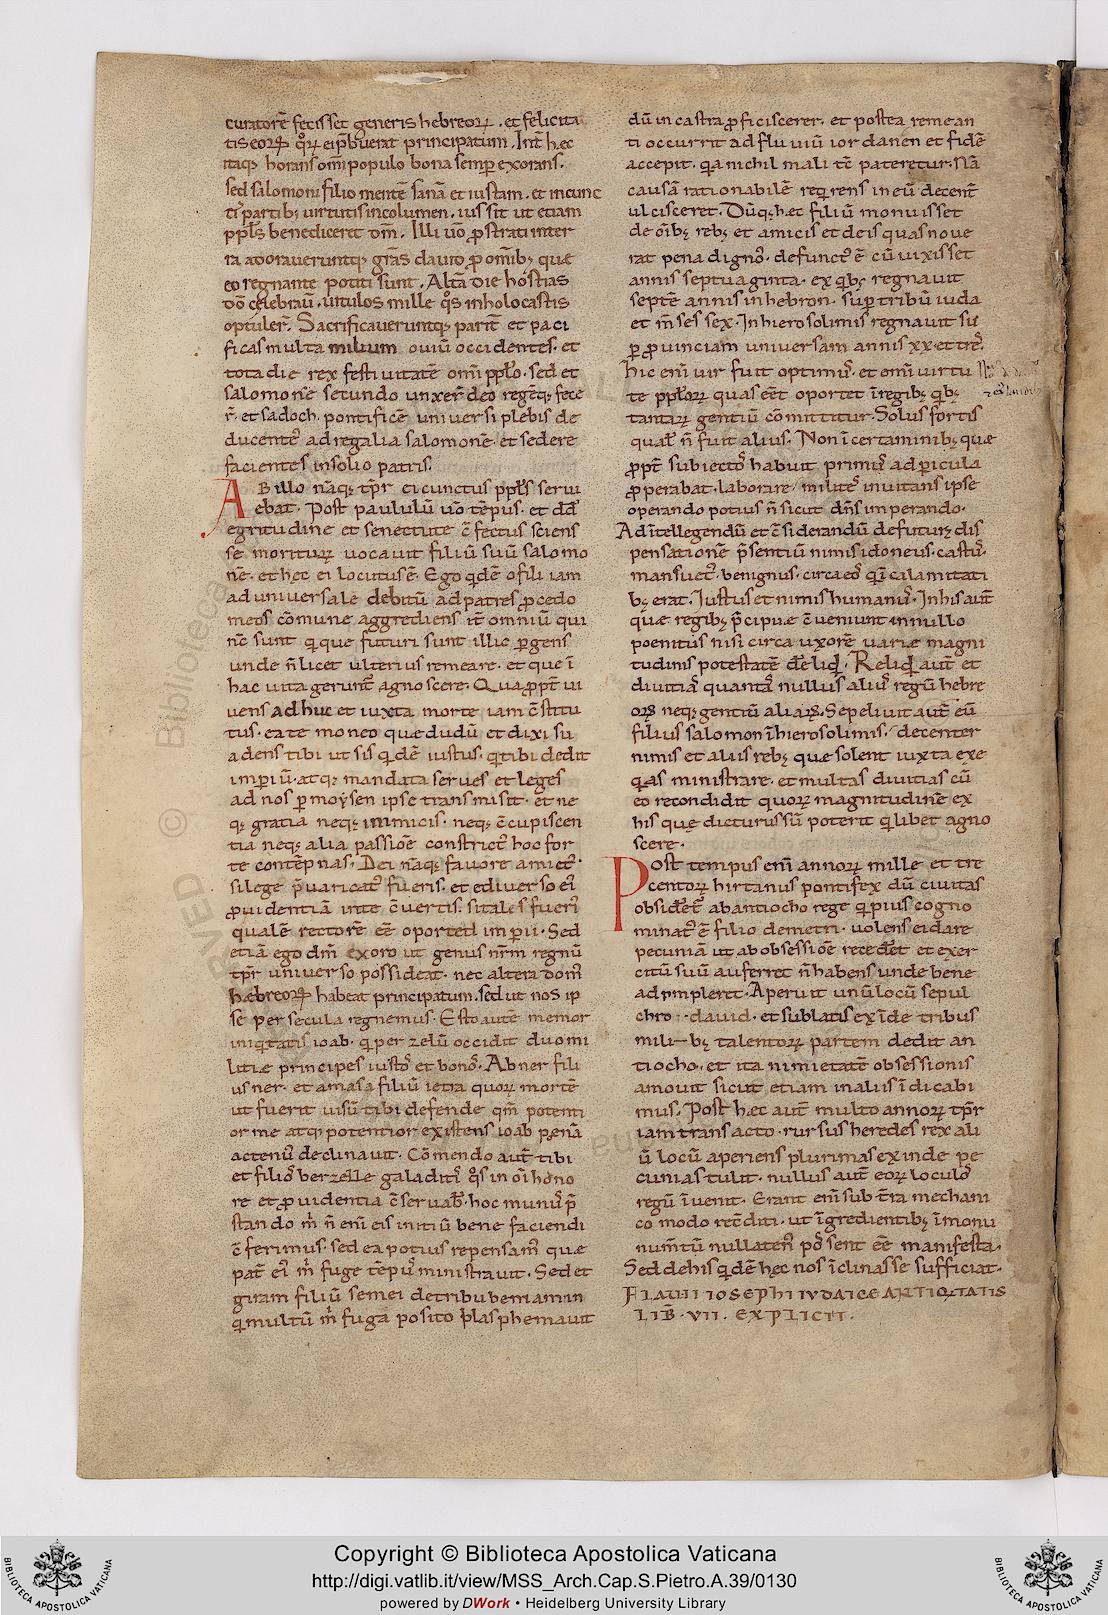 curatorē fecisset generis hebreoꝝ. et felicita
tis eoꝝ qͦꝝ ei p̄buerat principatum. Int̄ hęc
itaq; horans om̄i populo bona semp exorans.
sed salomoni filio mentē sanā et iustam. et in cunc
tis partib; virtutis incolumen. iussit ut etiam
ppl̄s benediceret dm̄. Illi ū̊o ꝓstrati in ter
ra adoraveruntq; gr̄as dauid ꝓ om̄ib; quę
eo regnante potiti sunt. Alt̄a die hostias
dō celebrau. vitulos mille qͦs in holocastis
optuler̄. Sacrificaveruntq; parit̄ et paci
ficas multa milium ouiū occidentes. et
tota die rex festivitatē om̄i ppl̄o. sed et
salomonē secundo unxer̄ deo regēq; fece
r̄. et sadoch. pontificē universi plebis de
ducentes ad regalia salomonē. et sedere
facientes in solio patris.
Ab illo nāq; tp̄r cicunctus ppl̄s serui
ebat. Post paululū ū̊o tēpus. et dd̄
egritudine et senectute c̄fectus sciens
se moriturꝝ uocauit filiū suū salomo
nē. et hec ei locutus ē. Ego qͥdē o fili iam
ad universale debitū ad patres ꝓcedo
meos cōmune aggrediens it̄ omniū qui
nc̄ sunt quique futuri sunt illic ꝑgens
unde n̄ licet ulterius remeare. et que ī
hac uita gerunt̄ agnoscere. Qua ꝓpt̄ ui
uens ad huc et iuxta morte iam c̄stitu
tus. ea te moneo que dudū et dixi su
adens tibi ut sis qͥdē iustus. q tibi dedit
imperiū. atq; mandata serves et leges
ad nos ꝑ moysen ipse transmisit. et ne
q; gratia neq; inimicis. neq; c̄cupiscen
tia neq; alia passiōe constrictus hoc for
te contēpnas. Dei nāq; favore amictus.
si lege p̄varicatus fueris. et ediverso ei
ꝓuidentiā in te c̄vertis. si tales fueris
qualē rectorē eē oported imperii. Sed
etiā ego dm̄ exoro ut genus nr̄m regnū
tp̄r universo possideat. nec altera domus
hębreoꝝ habeat principatum. sed ut nos ip
se per secula regnemus. Esto autē memor
iniqͥtatis ioab. q ꝑ zelū occidit duo mi
litię principes iustos et bonos. Abner fili
us ner. et amasa filiū ietra quoꝝ mortē
ut fuerit uisū tibi defende qm̄ potenti
or me atq; potentior existens ioab penā
actenus declinauit. Cōmendo aut̄ tibi
et filios berzelle galaditis qͦs in oī hono
re et ꝓuidentia c̄servabis. hoc munus p̄
stando m̄ n̄ enī eis initiū bene faciendi
c̄ferimus. sed ea potius repensamus quę
pat̄ eius m̄ fuge tēpus ministrauit. Sed et
giram filiū semei de tribu beniamin
q multū m̄ fuga posito blasphemauit
dū in castra ꝓficiscerer. et postea remean
ti occurrit ad fluviū iordanen et fidē
accepit. qa nichil mali tc̄ pateretur. Nā
causā rationabilē reqͥrens in eū decent̄
ulcisceret. Dūq; hęc filiū monuisset
de oīb; reb; et amicis et de is quas nove
rat pena dignos. defunctus ē cū uixisset
annis septuaginta. ex qͥb; regnauit
septē annis in hebron. sup tribū iuda
et m̄ses sex. In hierosolimis regnauit sup
ꝑ ꝓuinciam universam annis xx. et tres.
hic enī vir fuit optimus. et omī virtu
te ppl̄oꝝ quas eēt oportet ī regib; qͥb;
tantarꝝ gentiū cōmittitur. Solus fortis
qual̄ n̄ fuit alius. Non ī certaminib; quę
ꝓpt̄ subiectos habuit primus ad ꝑicula
ꝓperabat. laborare militē invitans ipse
operando potius n̄ sicut dn̄s imperando.
Ad intellegendū et c̄siderandū de futurꝝ dis
pensationē p̄sentiū nimis idoneus. castus.
mansuetus. benignus. circa eos qͥ ī calamitati
b; erat. Iustus et nimis humanus. In his aut̄
que regib; p̄cipuę c̄veniunt in nullo
poenitus nisi circa uxorē uarię magni
tudinis potestatē deliqͥt. Reliqͥt aut̄ et
divitias quantas nullus alius regū hebre
oꝝ neq; gentiū aliarꝝ. Sepelivit aut̄ eū
filius salomon ī hierosolimis. decenter
nimis et aliis reb; quę solent iuxta exe
qas ministrare. et multas divitias cū
eo recondidit quoꝝ magnitudinē ex
his quę dicturus sū poterit qlibet agno
scere.
Post tempus enī annoꝝ mille et tre
centoꝝ hirtanus pontifex dū civitas
obsideret̄ ab antiocho rege q pius cogno
minatus ē filio demetri. volens ei dare
pecuniā ut ab obsessiōe recederet et exer
citū suū auferret n̄ habens unde bene
ad impleret. Aperuit unū locū sepul
chro david. et sublatis ex īde tribus
milib; talentoꝝ partem dedit an
tiocho. et ita nimietatē obsessionis
amovit sicut etiam in aliis īdicabi
mus. Post hęc aut̄ multo annoꝝ tp̄r
iam transacto. rursus heredes rex ali
ū locū aperiens plurimas exinde pe
cunias tulit. nullus aut̄ eoꝝ loculos
regū īvenit. Erant enī sub t̄ra mechani
co modo recōditi. ut īgredientib; ī monu
mm̄tū nullatenus possent eē manifesta.
Sed de his qͥdē hęc nos īclinasse sufficiat.
FLAUII IOSEPHI IUDAICE ANTIQͥTATIS
LIB̄. VII. EXPLICIT.
Copyright © Biblioteca Apostolica Vaticana
http://digi.vatlib.it/view/MSS_Arch.Cap.S.Pietro.A.39/0130
powered by DWork • Heidelberg University Library